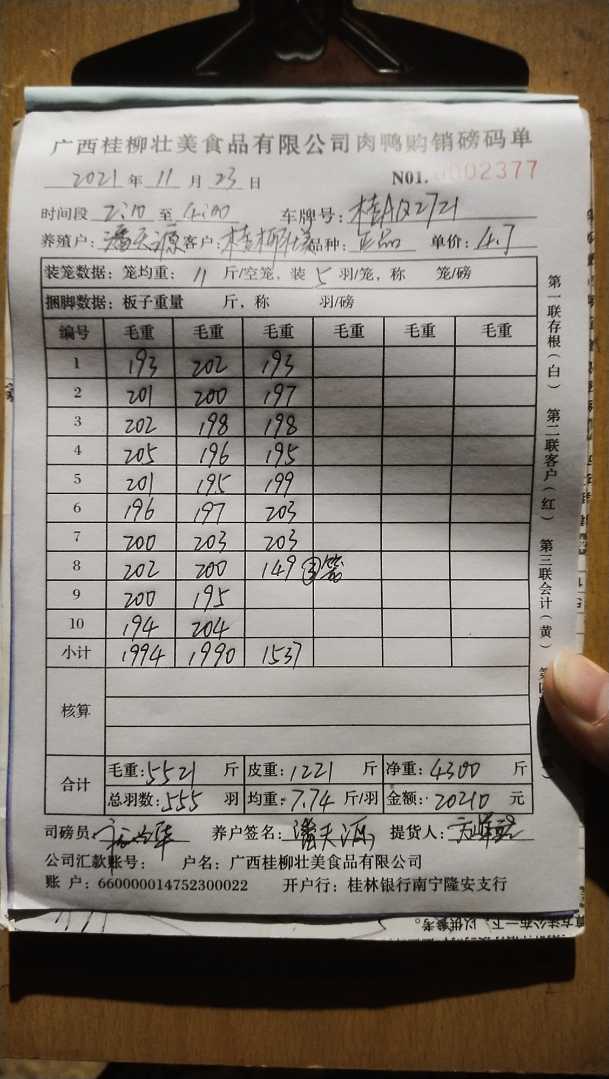 广西桂柳壮美食品有限公司肉鸭购销磅码单
2021 年 11 月 23 日 N01. 0002377
时间段 2:10 至 4:00 车牌号: 桂AQ2721
养殖户: 潘天源 客户: 桂柳 品种: 正品 单价: 4.7
装笼数据: 笼均重: 11 斤/空笼, 装 5 羽/笼, 称 笼/磅
捆脚数据: 板子重量 斤, 称 羽/磅
编号 毛重 毛重 毛重 毛重 毛重 毛重
1 193 202 193
2 201 200 197
3 202 198 198
4 205 196 195
5 201 195 199
6 196 197 203
7 200 203 203
8 202 200 149 ③笼
9 200 195
10 194 204
小计 1994 1990 1537
核算
合计
毛重: 5521 斤 皮重: 1221 斤 净重: 4300 斤
总羽数: 555 羽 均重: 7.74 斤/羽 金额: 20210 元
司磅员: 养户签名: 潘天源 提货人:
公司汇款账号: 户名: 广西桂柳壮美食品有限公司
账 户: 660000014752300022 开户行: 桂林银行南宁隆安支行
第一联存根(白) 第二联客户(红) 第三联会计(黄)